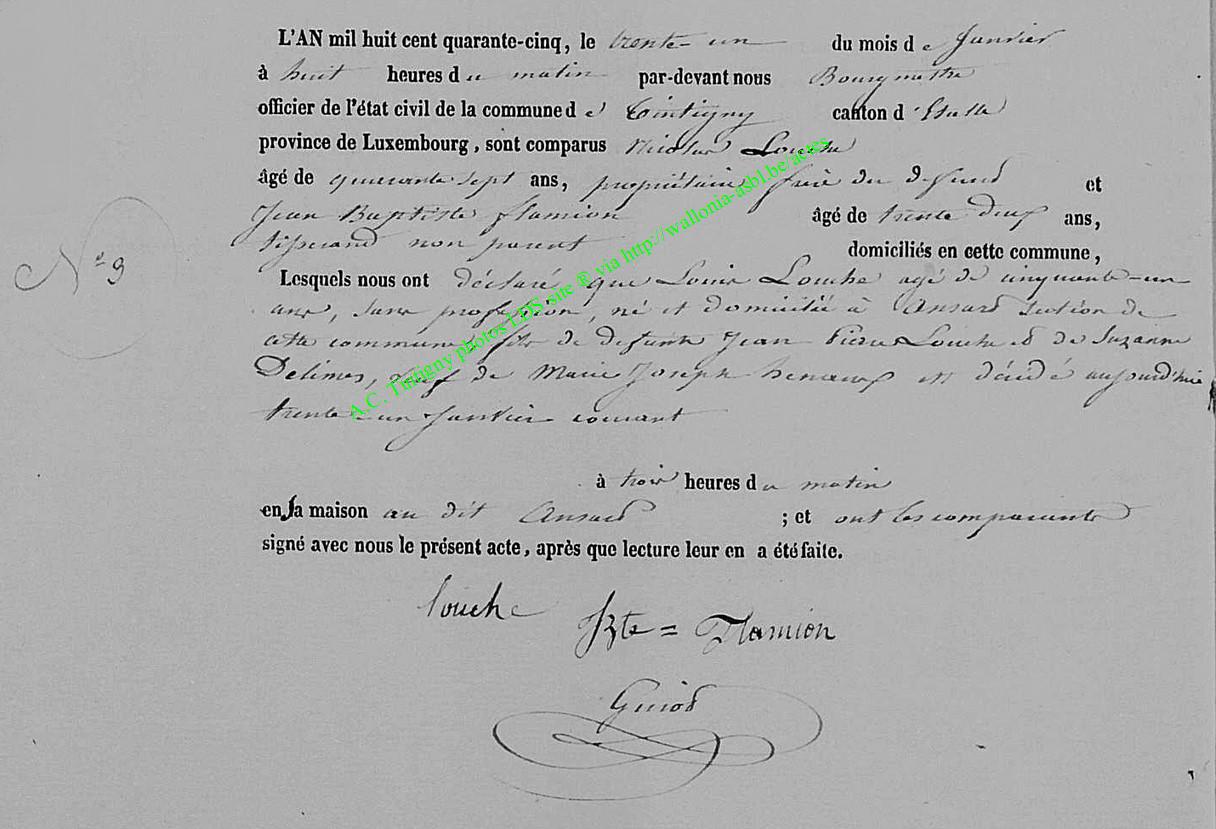 L'AN mil huit cent quarante-cinq, le trente-un du mois de Janvier
à huit heures du matin par-devant nous Bourgmestre
officier de l'état civil de la commune de Tintigny canton d'Etalle
province de Luxembourg, sont comparus Nicolas Louche
âgé de quarante sept ans, propriétaire frère du défunt et
Jean Baptiste Flamion âgé de trente deux ans,
tisserand non parent domiciliés en cette commune,
N° 9
Lesquels nous ont déclaré que Louis Louche agé de cinquante-un
ans, sans profession, né et domicilié à Ansart section de
cette commune, fils de défunts Jean Pierre Louche et de Suzanne
Delimes, veuf de Marie Joseph est décédé aujourd'hui
trente-un Janvier courant
à trois heures du matin
en sa maison au dit Ansart ; et ont les comparants
signé avec nous le présent acte, après que lecture leur en a été faite.
Louche
JBte = Flamion
Guiot
A.C. Tintigny photos LDS site ® via http://wallonia-asbl.be/actes